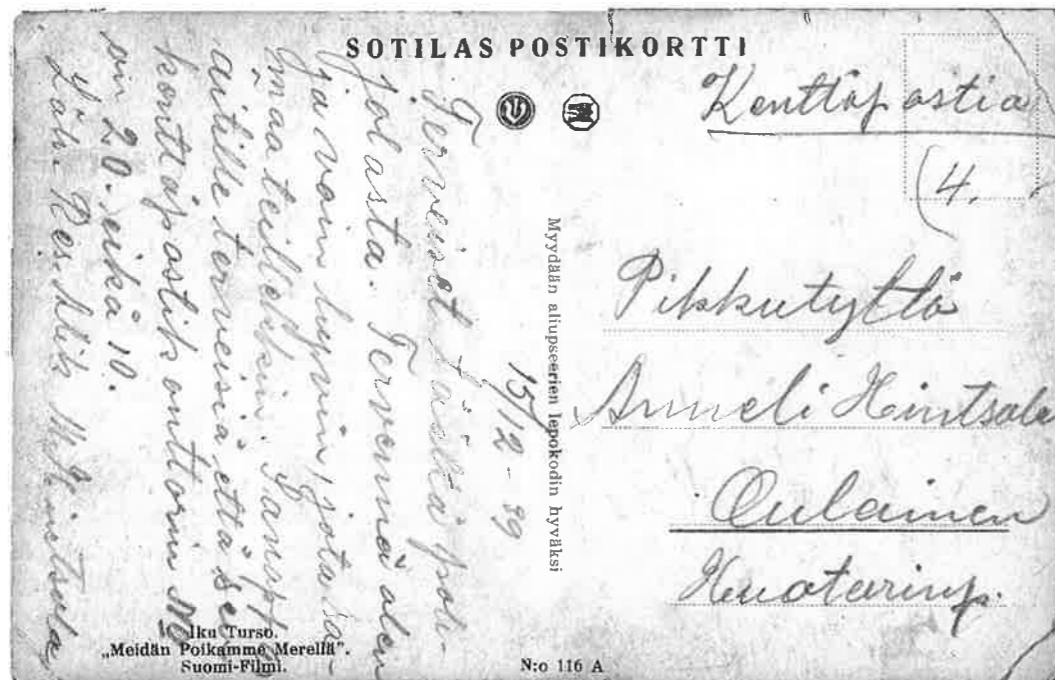 SOTILAS POSTIKORTTI
Kenttäpostia
4.
Pikkutyttö
Anneli Hintsala
Oulainen
Myydään aliupseerien lepokodin hyväksi
15/12-39
Terveiset täältä poh-
jolasta. Terveenä olen
ja voin hyvin, jota sa-
maa teillekkin. Sanoppa
äitille terveisiä että se
kenttäpostik onttorin No
on 20. eikä 10.
Res. Alik M. Hintsala
Iku Turso.
„Meidän Poikamme Merellä".
Suomi-Filmi.
N:o 116 A